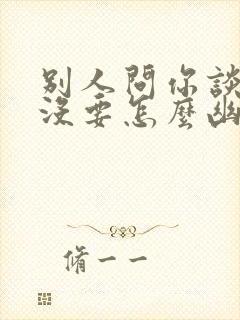 別人問你談
沒要怎麼幽
脩一一